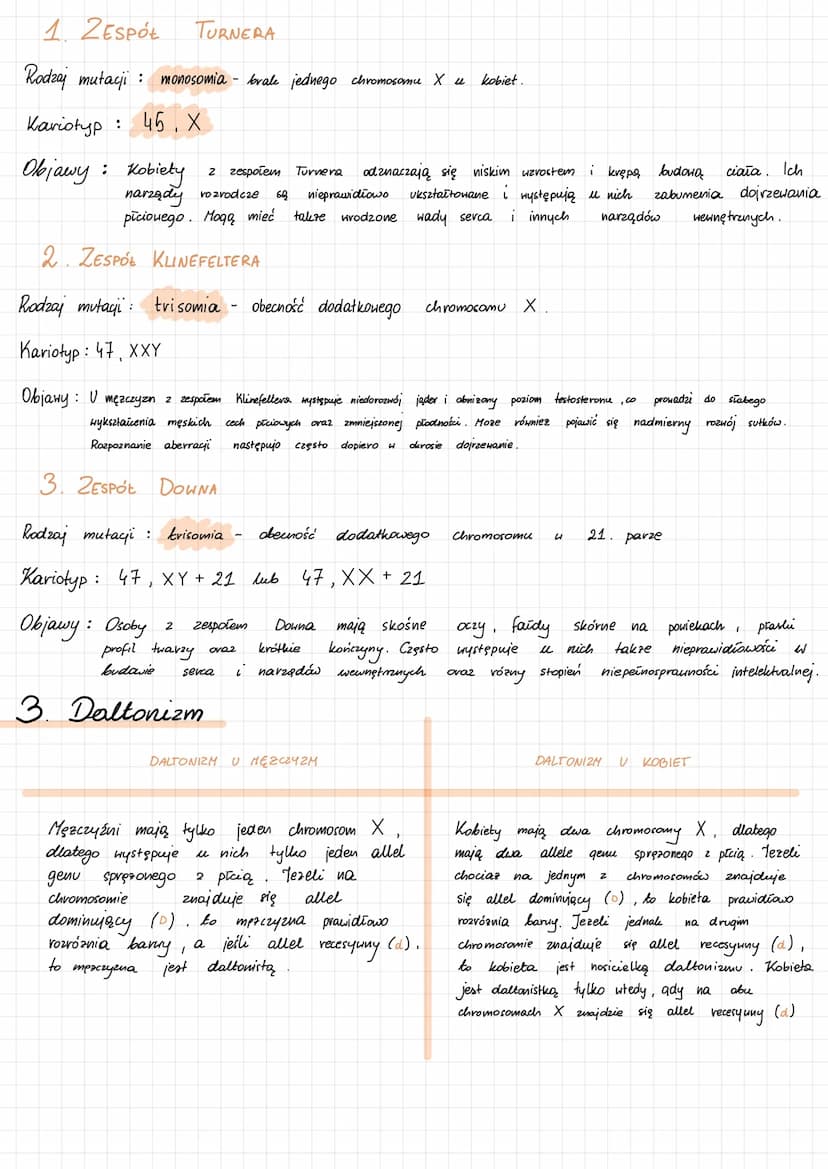 1. ZESPÓŁ TURNERA
Rodzaj mutacji : monosomia - brak jednego chromosomu X u kobiet.
Kariotyp : 45, X
Objawy : Kobiety z zespołem Turnera odznaczają się niskim wzrostem i krępą budową ciała. Ich
narządy rozrodcze są nieprawidłowo ukształtowane i występują u nich zaburzenia dojrzewania
płciowego. Mogą mieć także wrodzone wady serca i innych narządów wewnętrznych.
2. ZESPÓŁ KLINEFELTERA
Rodzaj mutacji : trisomia - obecność dodatkowego chromosomu X.
Kariotyp : 47, XXY
Objawy : U mężczyzn z zespołem Klinefeltera występuje niedorozwój jąder i obniżony poziom testosteronu, co prowadzi do słabego
wykształcenia męskich cech płciowych oraz zmniejszonej płodności. Może również pojawić się nadmierny rozwój sutków.
Rozpoznanie aberracji następuje często dopiero w okresie dojrzewanie.
3. ZESPÓŁ DOWNA
Rodzaj mutacji : trisomia - obecność dodatkowego chromosomu w 21. parze
Kariotyp : 47, XY + 21 lub 47, XX + 21
Objawy : Osoby z zespołem Downa mają skośne oczy, fałdy skórne na powiekach, płaski
profil twarzy oraz krótkie kończyny. Często występuje u nich także nieprawidłowości w
budowie serca i narządów wewnętrznych oraz różny stopień niepełnosprawności intelektualnej.
3. Daltonizm
DALTONIZM U MĘŻCZYZM
Mężczyźni mają tylko jeden chromosom X,
dlatego występuje u nich tylko jeden allel
genu sprężonego z płcią. Jeżeli na
chromosomie znajduje się allel
dominujący (D), to mężczyzna prawidłowo
rozróżnia barwy, a jeśli allel recesywny (d),
to mężczyzna jest daltonistą.
DALTONIZM U KOBIET
Kobiety mają dwa chromosomy X, dlatego
mają dwa allele genu sprężonego z płcią. Jeżeli
chociaż na jednym z chromosomów znajduje
się allel dominujący (D), to kobieta prawidłowo
rozróżnia barwy. Jeżeli jednak na drugim
chromosomie znajduje się allel recesywny (d),
to kobieta jest nosicielką daltonizmu. Kobieta
jest daltonistką tylko wtedy, gdy na obu
chromosomach X znajdzie się allel recesywny (d)